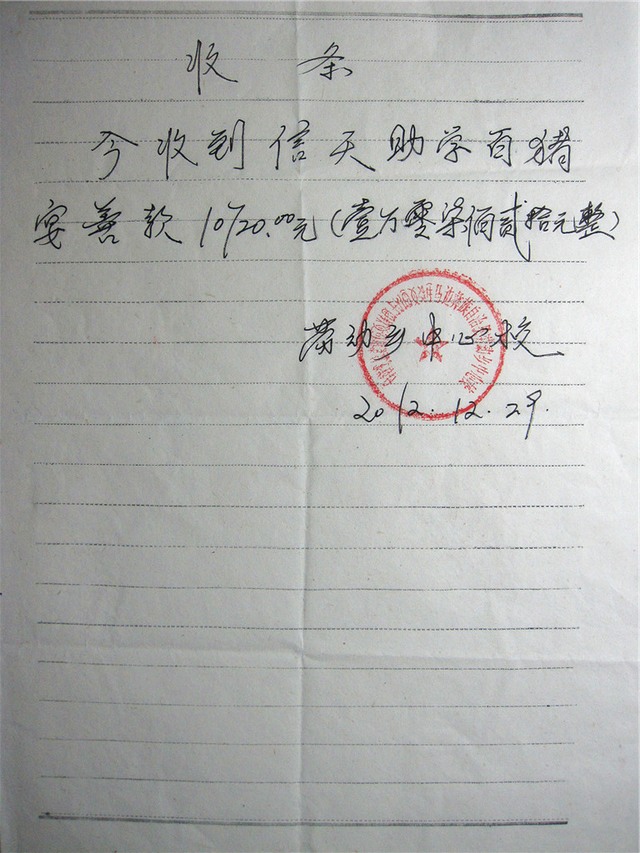 收条
今收到信天助学百猪
宴善款10720.00元(壹万零柒佰贰拾元整)
劳动乡中心校
2012.12.29.